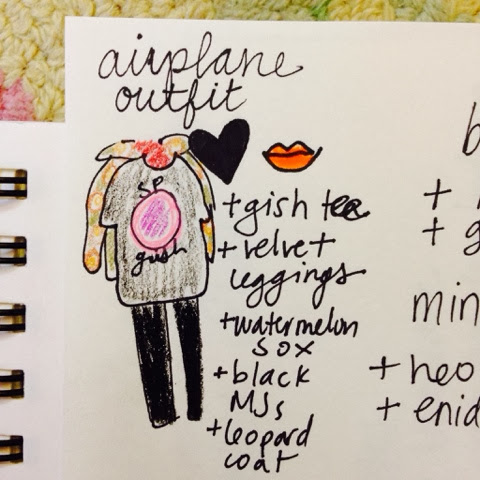 airplane
outfit
SP
gish
+ gish tea
+ velvet
leggings
+ watermelon
sox
+ black
MJs
+ leopard
coat
b
+
+ g
min
+ heo
+ enid